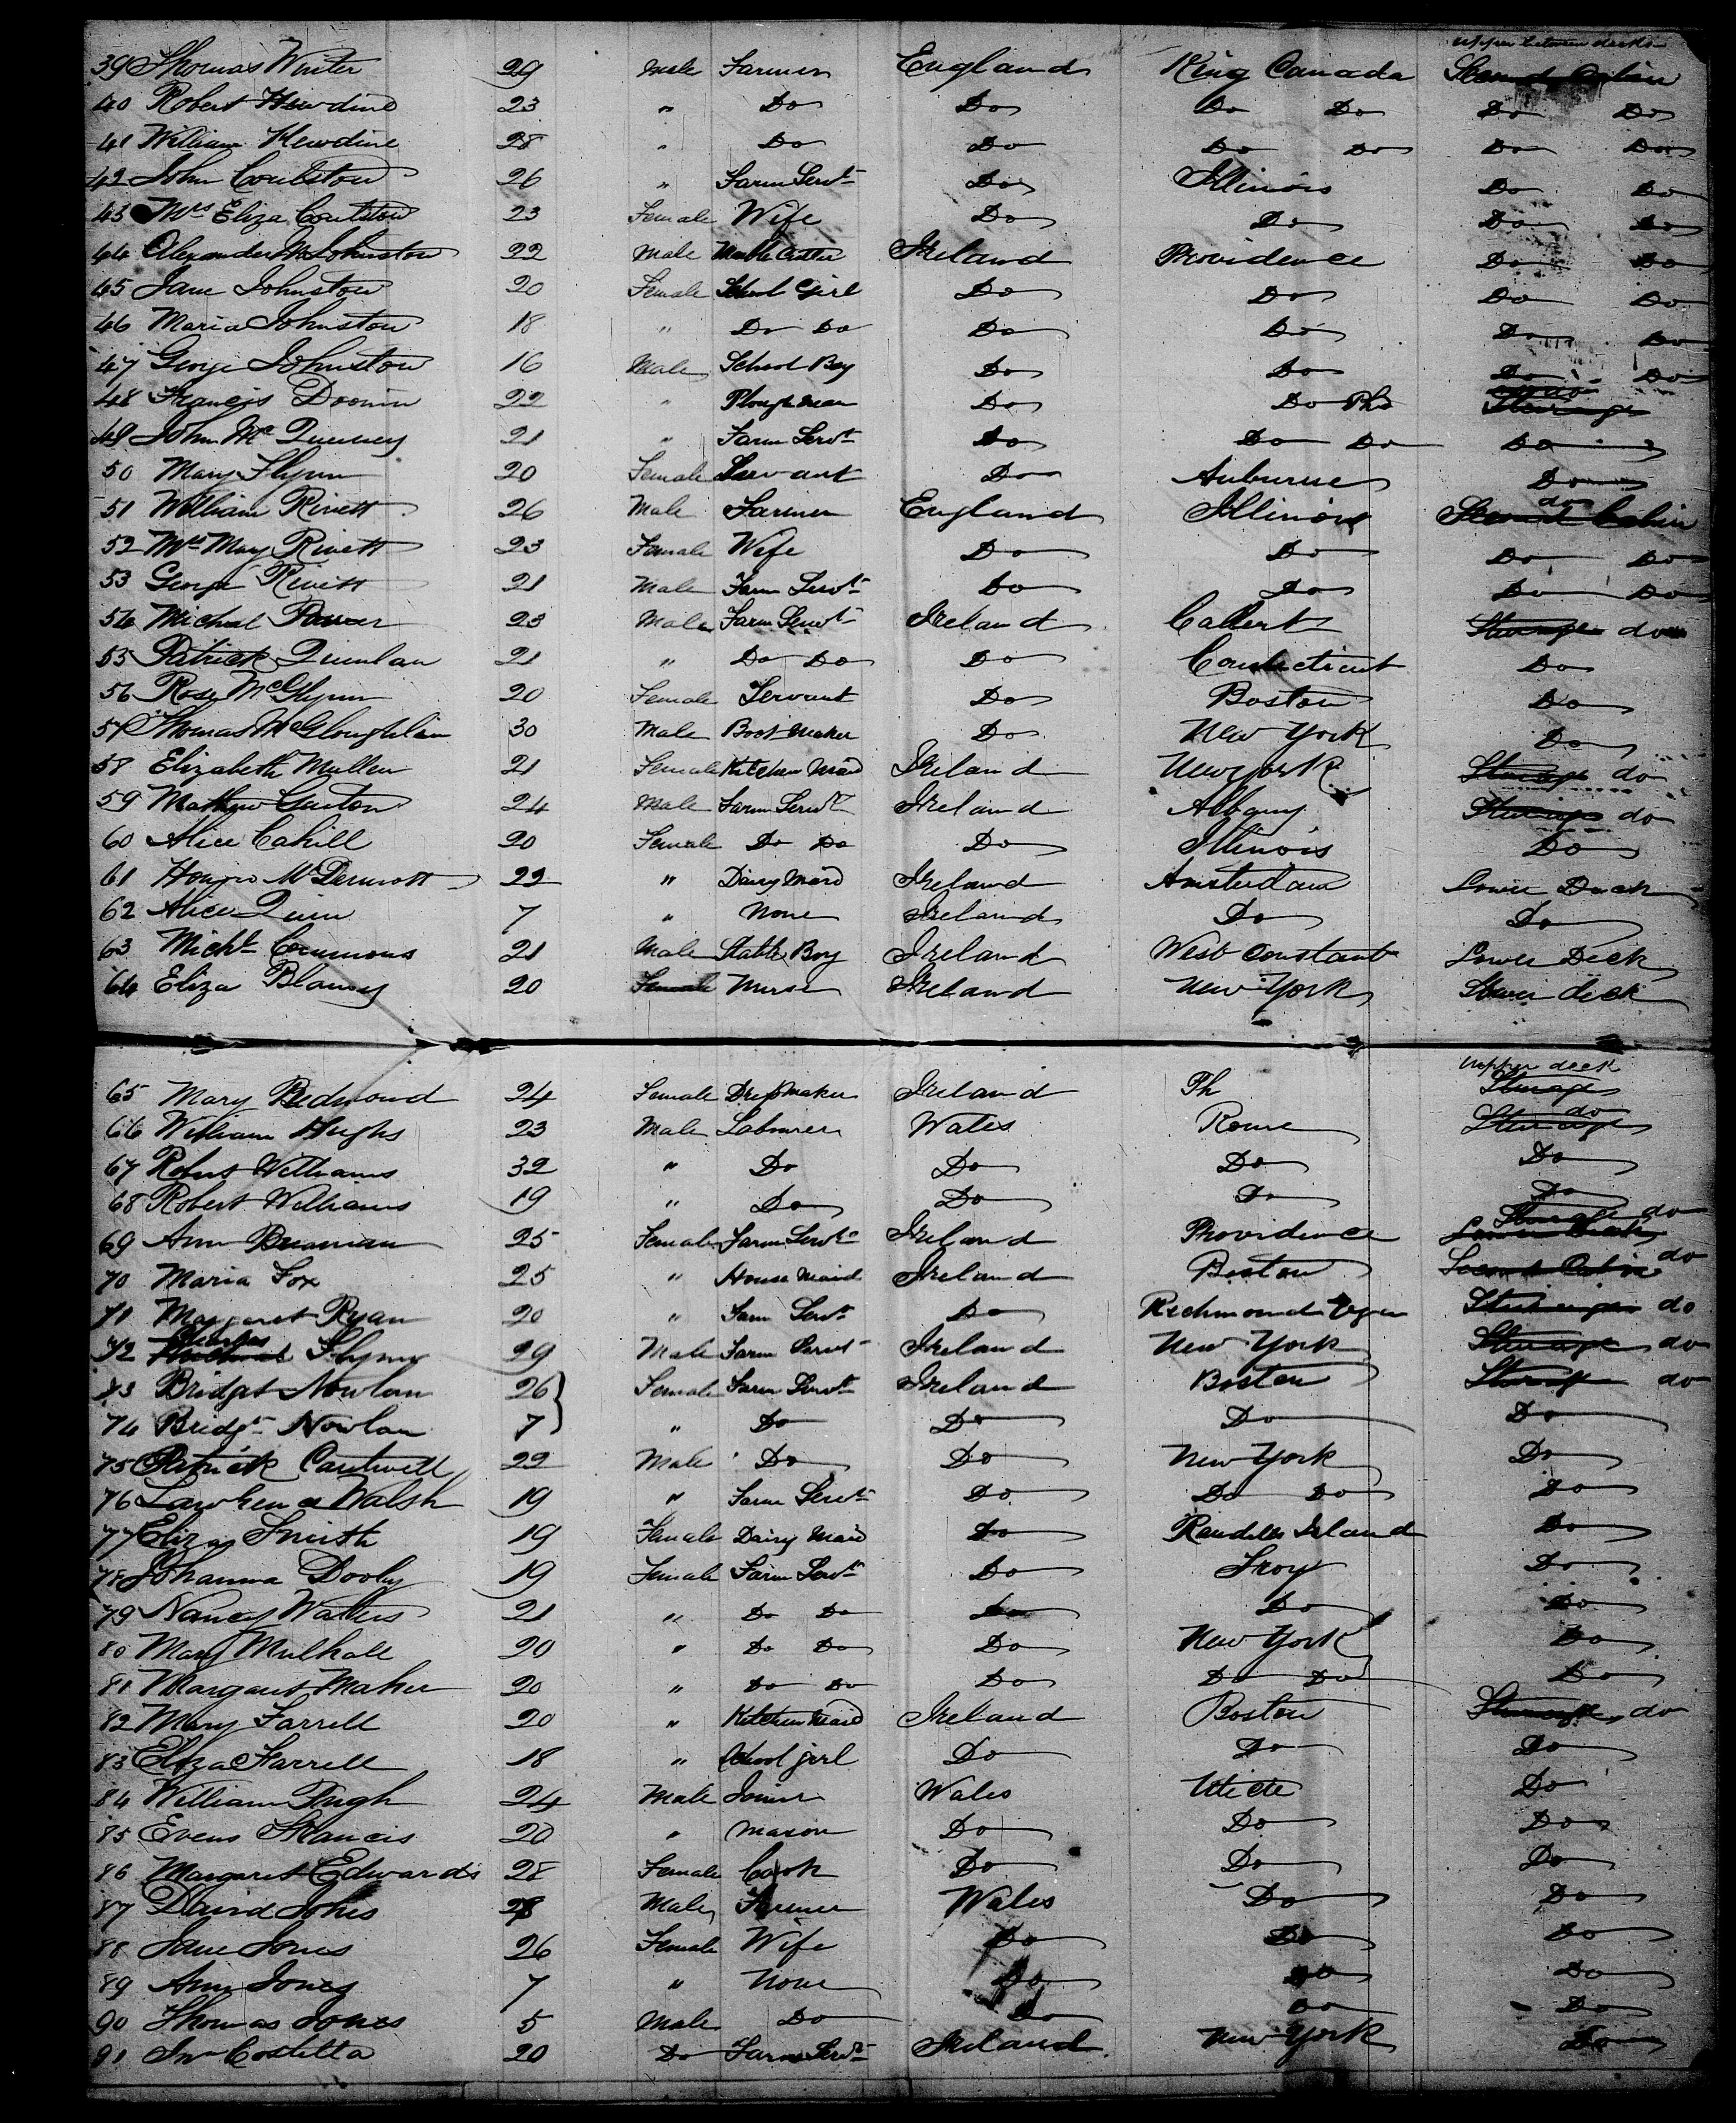 Upper between decks
39 Thomas Winter 29 Male Farmer England King Canada Second Cabin
40 Robert Hewdine 23 " Do Do Do Do Do Do
41 William Hewdine 28 " Do Do Do Do Do Do
42 John Coulston 26 " Farm Servt Do Illinois Do Do
43 Mrs Eliza Coulston 23 Female Wife Do Do Do Do
44 Alexander Johnston 22 Male Marble Cutter Ireland Providence Do Do
45 Jane Johnston 20 Female School Girl Do Do Do Do
46 Maria Johnston 18 " Do Do Do Do Do Do
47 George Johnston 16 Male School Boy Do Do Do Do
48 Francis 22 " Plough man Do Do Pha Steerage do
49 John Mc 21 " Farm Servt Do Do Do Do
50 Mary Flynn 20 Female Servant Do Auburne Do
51 William Rivett 26 Male Farmer England Illinois Second Cabin do
52 Mrs Mary Rivett 23 Female Wife Do Do Do Do
53 George Rivett 21 Male Farm Servt Do Do Do Do
54 Michael Power 23 Male Farm Servt Ireland Steerage do
55 Patrick Quinlan 21 " Do Do Do Conecticut Do
56 Rose McGlynn 20 Female Servant Do Boston Do
57 Thomas McGloughlin 30 Male Boot Maker Do New York Do
58 Elizabeth Mullen 21 Female Kitchen Maid Ireland New York Steerage do
59 Mathew Gaston 24 Male Farm Servt Ireland Albany Steerage do
60 Alice Cahill 20 Female Do Do Do Illinois Do
61 McDermott 22 " Dairy Maid Ireland Amsterdam Lower Deck
62 Alice Quinn 7 " None Ireland Do Do
63 Michl Commons 21 Male Stable Boy Ireland West Constant Lower Deck
64 Eliza Blaney 20 Female Nurse Ireland New York Lower deck
Upper deck
65 Mary Redmond 24 Female Dressmaker Ireland Ph Steerage
66 William Hughs 23 Male Labourer Wales Rome Steerage do
67 Robert Williams 32 " Do Do Do Do
68 Robert Williams 19 " Do Do Do Do
69 Ann Brennan 25 Female Farm Servt Ireland Providence Lower Deck Steerage do
70 Maria Fox 25 " House Maid Ireland Boston Second Cabin do
71 Margaret Ryan 20 " Farm Servt Do Richmond Steerage do
72 Charles Flynn 29 Male Farm Servt Ireland New York Steerage do
73 Bridget Nowlan 26 Female Farm Servt Ireland Boston Steerage do
74 Bridgt Nowlan 7 " Do Do Do Do
75 Patrick Cantwell 22 Male Do Do New York Do
76 Lawrence Walsh 19 " Farm Servt Do Do Do Do
77 Eliza Smith 19 Female Dairy Maid Do Randells Island Do
78 Johanna Dooly 19 Female Farm Servt Do Troy Do
79 Nancy Watters 21 " Do Do Do Do Do
80 Mary Mulhall 20 " Do Do Do New York Do
81 Margaret Maher 20 " Do Do Do Do Do Do
82 Mary Farrell 20 " Kitchen Maid Ireland Boston Steerage do
83 Eliza Farrell 18 " School girl Do Do Do
84 William Pugh 24 Male Joiner Wales Utica Do
85 Evens Francis 20 " Mason Do Do Do
86 Margaret Edwards 28 Female Cook Do Do Do
87 David Jones 28 Male Farmer Wales Do Do
88 Jane Jones 26 Female Wife Do Do Do
89 Ann Jones 7 " None Do Do Do
90 Thomas Jones 5 Male Do Do Do Do
91 Jno Costella 20 Do Farm Servt Ireland New York Do